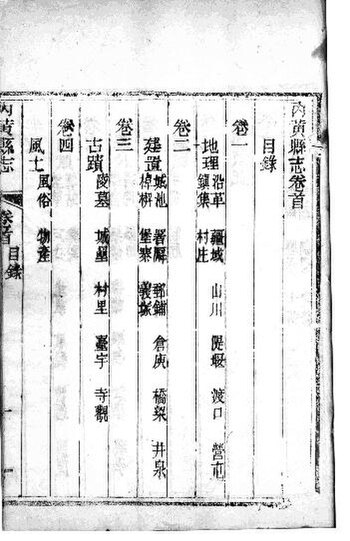 內黃縣志卷首
目錄
卷一
地理 沿革 疆域 山川 隄堰 渡口 營屯
鎮集 村庄
卷二
建置 城池 署廨 郵鋪 倉庾 橋梁 井泉
棹楔 堡寨 義塚
卷三
古蹟 陵墓 城壘 村里 臺宇 寺觀
卷四
風土 風俗 物產
內黃縣志
卷首 目錄
一